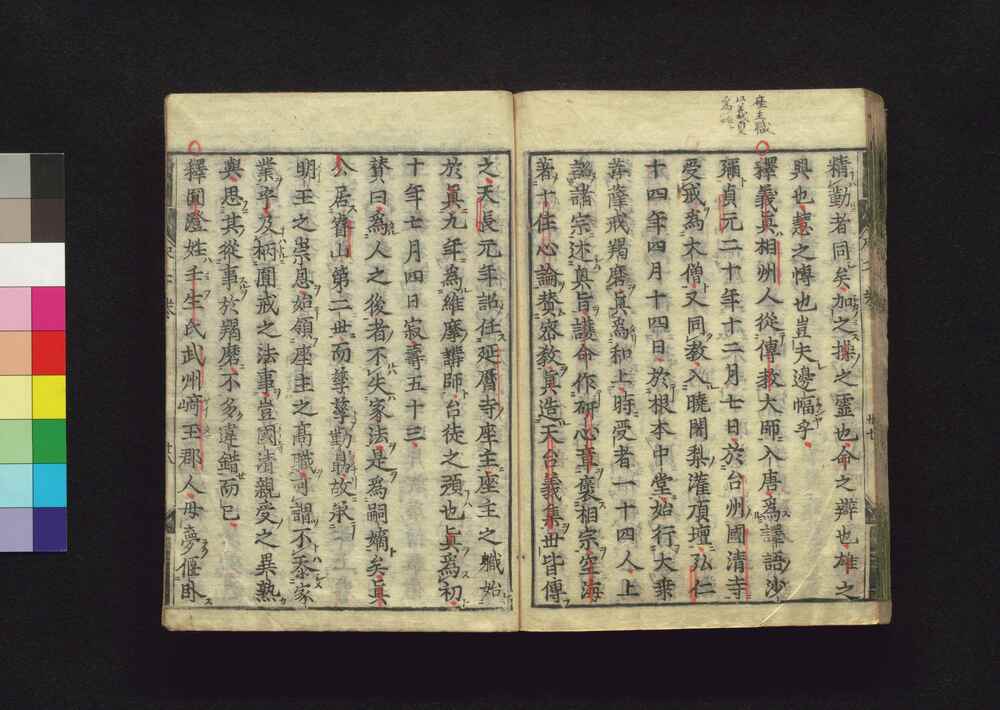 座主職
以義真
為始
精勤者同矣加之操之靈也命之辨也雄之
興也慧之慱也豈夫邊幅乎
釋義真相州人從傳教大師入唐為譯語沙
彌貞元二十年十二月七日於台州國清寺
受戒為大僧又同教入曉闍梨灌頂壇弘仁
十四年四月十四日於根本中堂始行大乗
菩薩戒羯磨真為和上時受者一十四人上
詔諸宗述奥旨護命作研心章褒相宗空海
著十住心論賛密教真造天台義集世皆傳
之天長元年詔任延曆寺座主座主之職始
於真九年為維摩講師台徒之預也真為初
十年七月四日寂壽五十三
賛曰為人之後者不失家法是為嗣嫡矣真
公居台山第二世而孳孳勤勗故承
明王之崇恩始領座主之高職可謂不忝家
業乎及柄圓戒之法事豈國清親受之異熟
與思其從事於羯磨不多違錯而已
釋圓澄姓壬生氏武州﨑玉郡人母夢偃臥